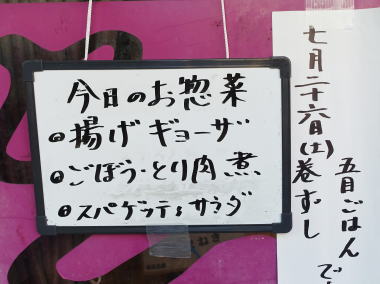 今日のお惣菜
揚げギョーザ
ごぼう・とり肉煮
スパゲッティサラダ
七月二十六日(土)
巻ずし
五目ごはん